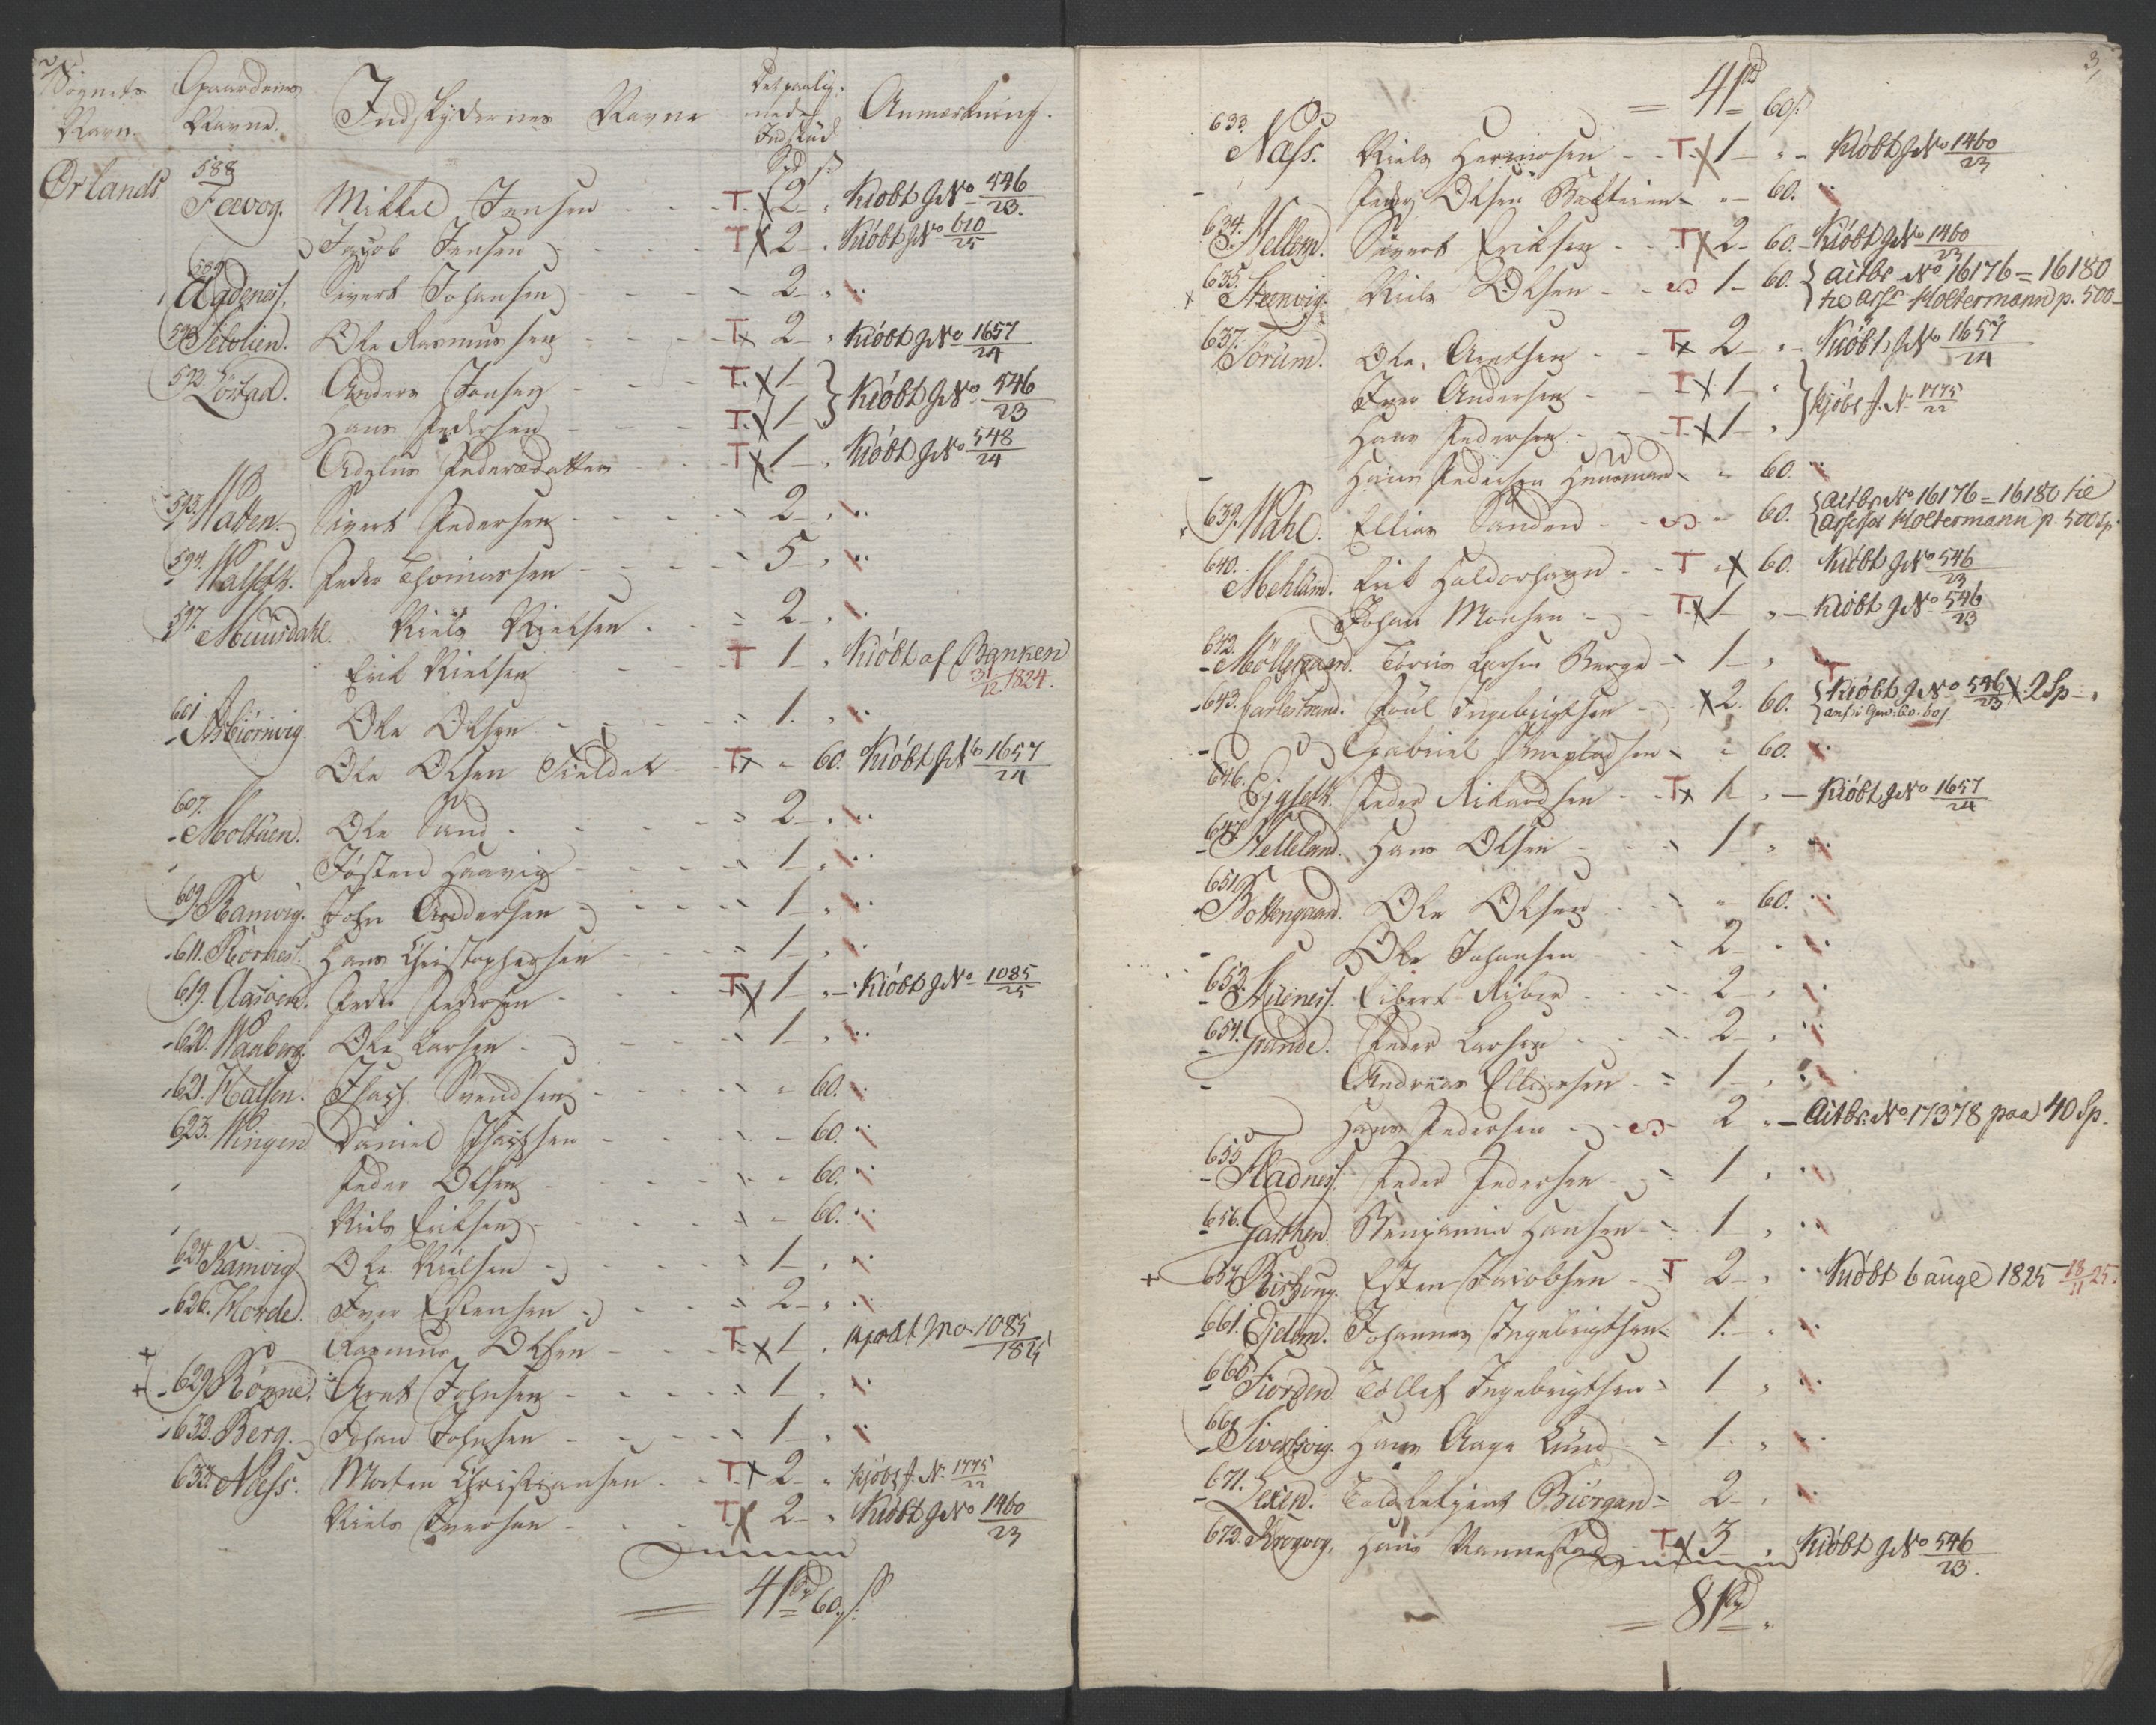 Sognets Navn
Gaardenes Navne.
Indskydernes Navne
Det paalignede Indskud
Anmærkning.
Spd ß
Ørlands
588 Fævog. Mikkel Jensen T. X 2 Kiöbt J No 546/23.
Jacob Jensen T X 2 Kiöbt J No 610/25
589 Agdeness. Sivert Johansen 2
Ole Rasmussen Tx 2 Kiöbt J No 1657/24
592 Anders Jonsen T. X 1 } Kiöbt J No 546/23
Hans Pedersen T. X 1
Pedersdatter T X 1 Kiöbt J No 548/24
593. Watten. Sivert Pedersen 2
594. Walseth. Peder Thomassen 5
597. Muusdahl. Niels Nielsen 2
Erik Nielsen T 1 Kiöbt af Banken 31/12 1824.
601 Asbiörnvig. Ole Olsen 1
Ole Olsen Fieldet Tx 60. Kiöbt J No 1657/24
607. Moltuen. Ole Sand 2
Josten Haavig 1
609. Ramvig. John Andersen 1
611. Körness. Hans Christophersen 1
619. Peder Pedersen T. X 1 Kiöbt J No 1085/25
620. Wanberg. Ole Larsen 1
621. Kalsen. Isach Svendsen 60.
623. Wingen. Daniel Isachsen 60.
Peder Olsen 60.
Niels Eriksen 60.
624 Ramvig Ole Nielsen 1
626. Horde. Iver Estensen 2
Rasmus Olsen T. X 1 Kjøbt J No 1085/1825
629 Rönne. Arnt Johnsen 1
632. Berg. Johan Johnsen 1
633. Næss. Morten Christiansen T. X 2 Kjøbt J. N. 1775/22
Niels Iversen T. X 2 Kiöbt J No 1460/23
41 Spd 60 ß
3
41 Spd 60 ß
633 Næss. Niels T. X 1 Kiöbt J No 1460/23
Peder Olsen 60.
634. Mellem. Sivert Eriksen T X 2 60. Kiöbt J No 1460/23
635. Steenvig. Niels Olsen S 1 60. { Actbr No 16176 = 16180
til Assr Holtermann p. 500
637. Törum. Ole Arntsen Tx 2 Kiöbt J No 1657/24
Iver Andersen T X 1 } Kjøbt J. N. 1775/22
Hans Pedersen T. X 1
Hans Pedersen Huusmand 60.
639. Wahl. Ellias Sanden S 60. { Actbr No 16176 = 16180 til
Assessor Holtermann p. 500 Sp.
640. Mehlum. Erik Haldorhavn T X 60. Kiöbt J No 546/23
Johan Monsen T. X 1 Kiöbt J No 546/23
642. Möllgaard. Törris Larsen Berge 1
643. Carlestrand. Poul Ingebrigtsen X 2. 60. { T Kiöbt J No 546/23 X 2 Sp
Gabriel 60.
646. Eyseth. Peder Rikardsen Tx 1 Kiöbt J No 1657/24
647 Helleland. Hans Olsen 1
651 Bottengaard. Ole Olsen 60.
Ole Johansen 2
653. Eibert Riber 2
654. Grande. Peder Larsen 2
Andreas Elliasen 1
Hans Pedersen S 2 Actbr. No 17378 paa 40 Sp.
655 Fladness. Peder Pedersen 1
656. Garthen. Benjamin Hansen 1
657 Esten Jacobsen T 2 Kiöbt 6 aug 1825 18/11 25.
661. Ejdem. Johannes Ingebrigtsen 1.
665 Fiorden. Tollef Ingebrigtsen 1
668 Sivertsvig. Hans Aage Lund 1.
671. Lexen. Toldbetjent Biörgan 2
672. Krogvog. Hans T. X 3 Kiöbt J No 546/23.
81 Spd